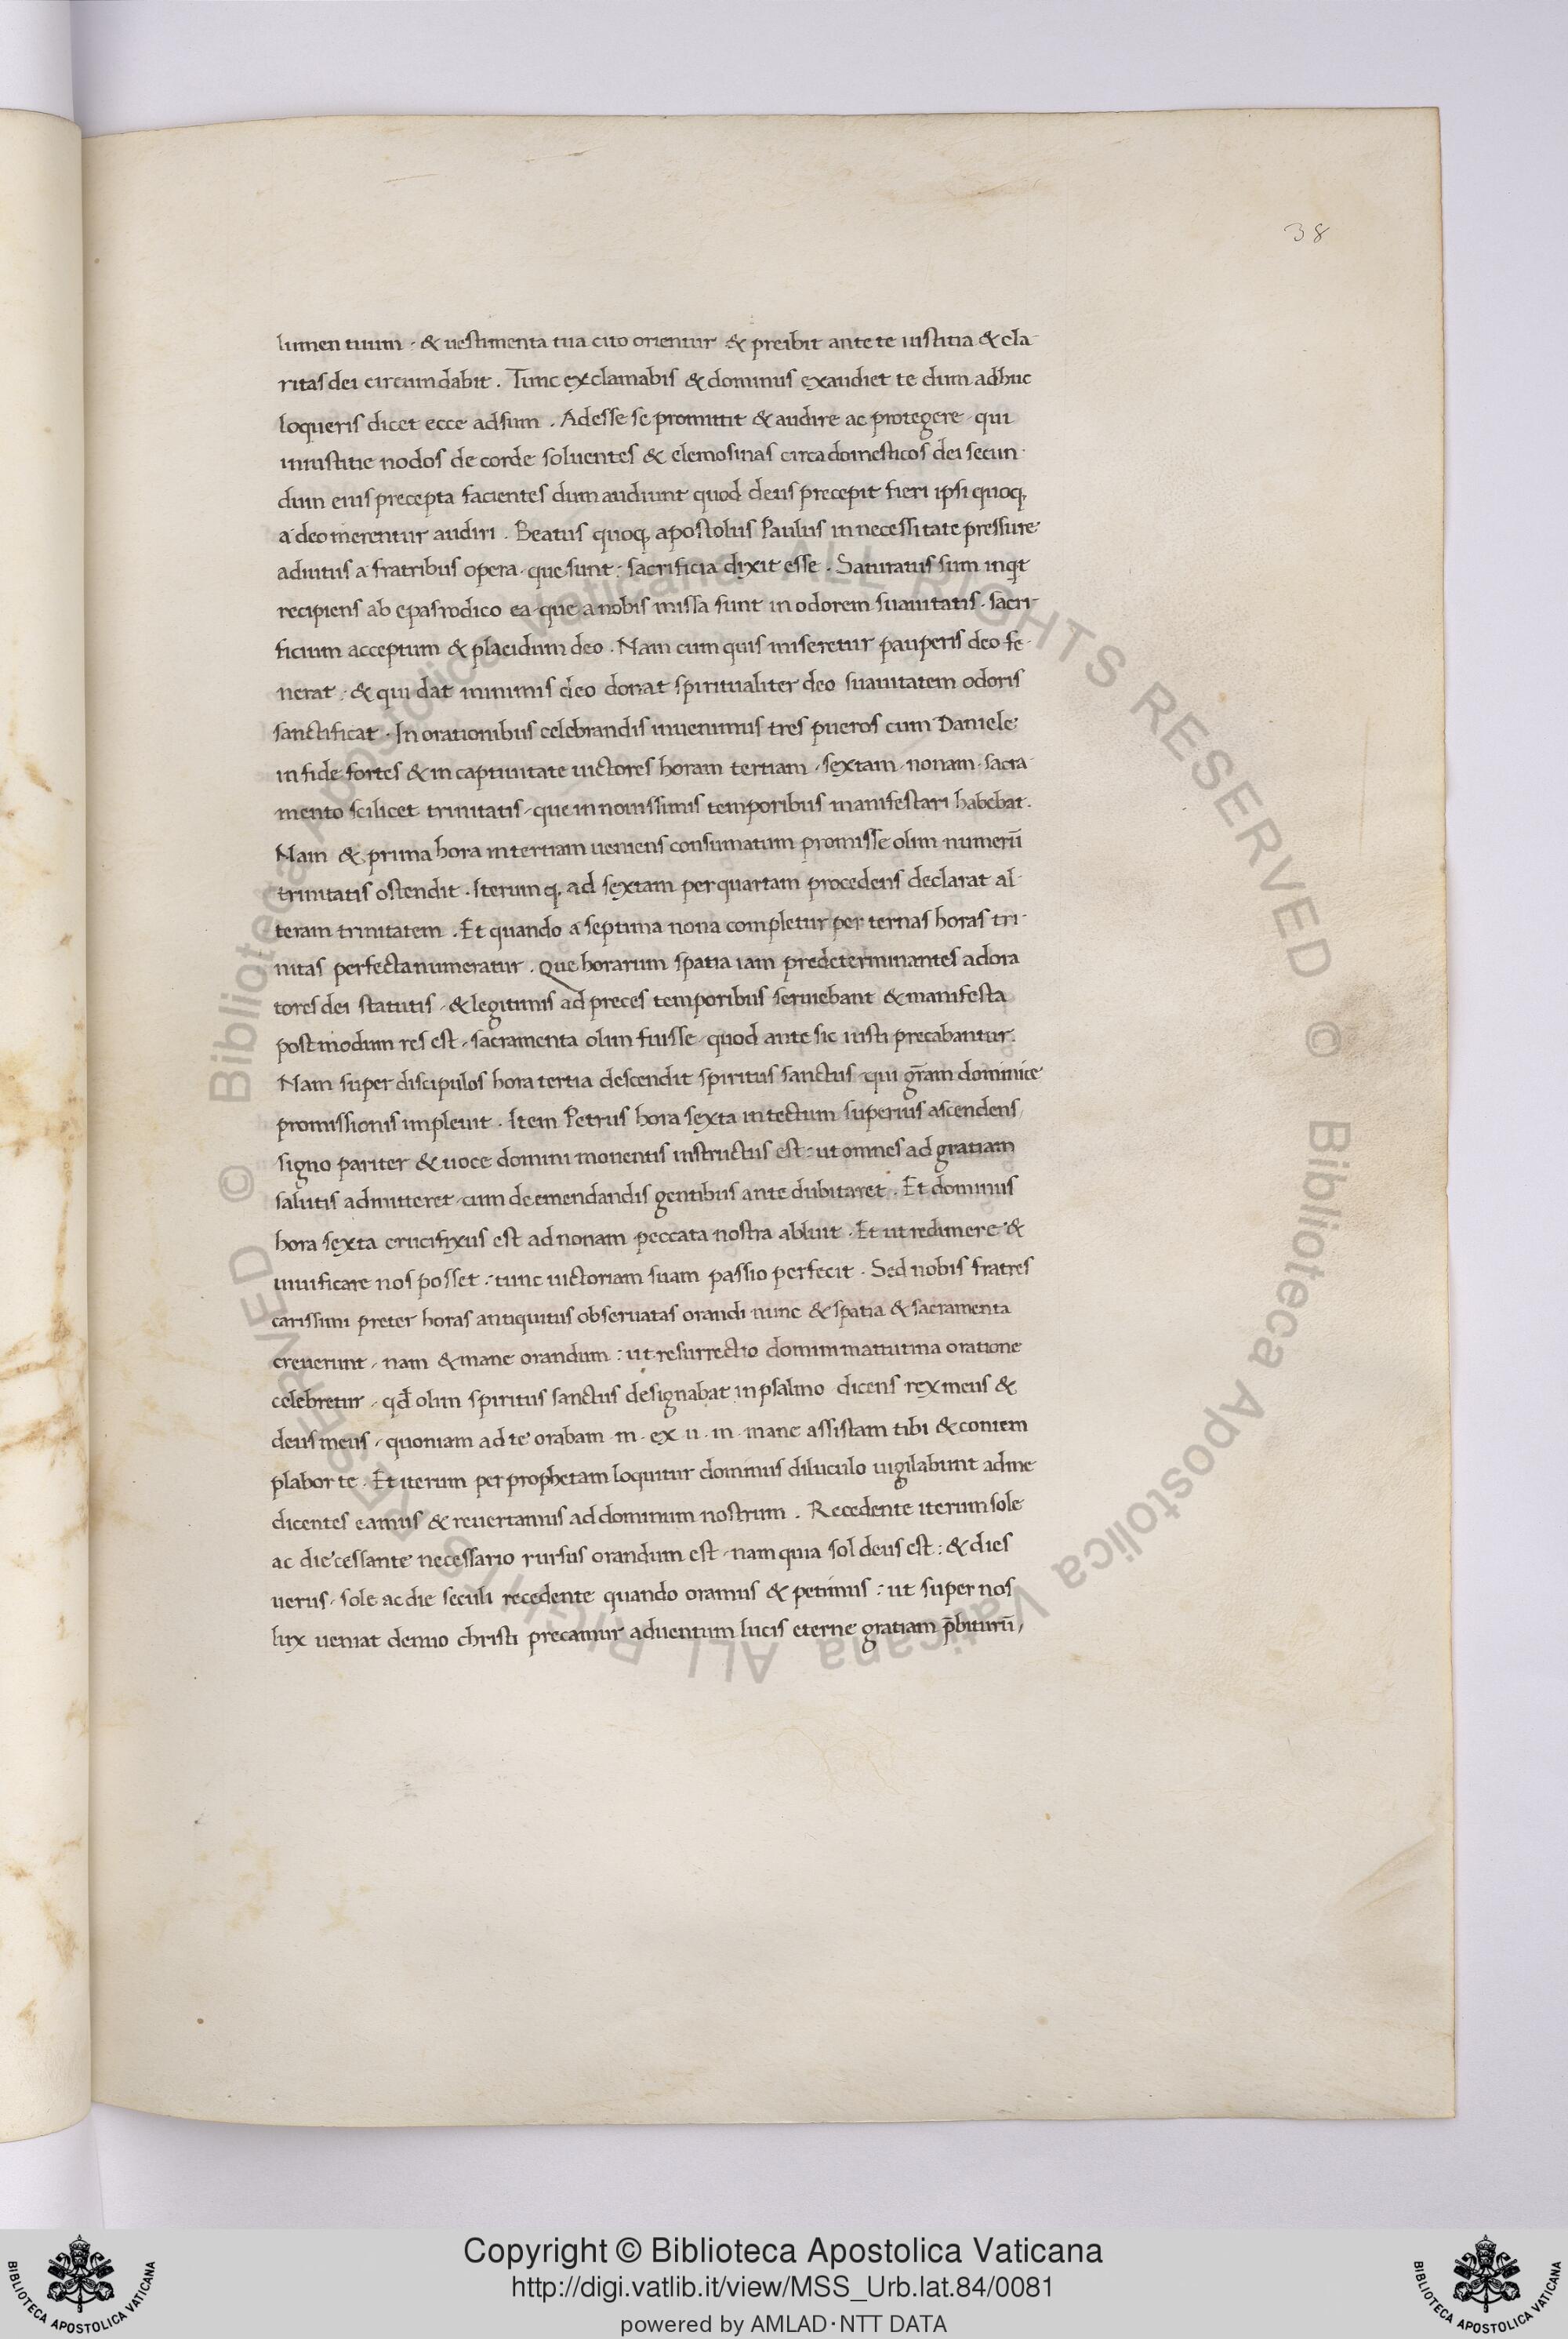 38
lumen tuum · & uestimenta tua cito orientur & preibit ante te iustitia & cla-
ritas dei circumdabit . Tunc exclamabis & dominus exaudiet te dum adhuc
loqueris dicet ecce adsum . Adesse se promittit & audire ac protegere qui
iniustitie nodos de corde soluentes & elemosinas circa domesticos dei secun-
dum eius precepta facientes dum audiunt quod deus precepit fieri ipsi quoq;
a deo merentur audiri . Beatus quoq; apostolus Paulus in necessitate pressure
adiutus a fratribus opera · que sunt : sacrificia dixit esse . Saturatus sum inqt
recipiens ab epafrodico ea · que a nobis missa sunt in odorem suauitatis · sacri-
ficium acceptum & placidum deo . Nam cum quis miseretur pauperis deo fe-
nerat : & qui dat minimis deo donat spiritualiter deo suauitatem odoris
sanctificat . In orationibus celebrandis inuenimus tres pueros cum Daniele
in fide fortes & in captiuitate uictores horam tertiam · sextam · nonam · sacra-
mento scilicet trinitatis · que in nouissimis temporibus manifestari habebat .
Nam & prima hora in tertiam ueniens consumatum promisse olim numerū
trinitatis ostendit . Iterum q; ad sextam per quartam procedens declarat al-
teram trinitatem . Et quando a septima nona completur per ternas horas tri-
nitas perfecta numeratur . Que horarum spatia iam predeterminantes adora
tores dei statutis · & legitimis ad preces temporibus seruiebant & manifesta
postmodum res est · sacramenta olim fuisse · quod ante sic iusti precabantur .
Nam super discipulos hora tertia descendit spiritus sanctus qui grām dominice
promissionis impleuit . Item Petrus hora sexta in tectum superius ascendens
signo pariter & uoce domini monentis instructus est : ut omnes ad gratiam
salutis admitteret · cum de emendandis gentibus ante dubitaret . Et dominus
hora sexta crucifixus est ad nonam peccata nostra abluit . Et ut redimere &
uiuificare nos posset : tunc uictoriam suam passio perfecit . Sed nobis fratres
carissimi preter horas antiquitus obseruatas orandi nunc & spatia & sacramenta
creuerunt · nam & mane orandum : ut resurrectio domini matutina oratione
celebretur · qđ olim spiritus sanctus designabat in psalmo · dicens rex meus &
deus meus · quoniam ad te orabam · m · ex · u · m · mane assistam tibi & contem
plabor te : Et iterum per prophetam loquitur dominus diluculo uigilabunt ad me
dicentes eamus & reuertamus ad dominum nostrum . Recedente iterum sole
ac die cessante necessario rursus orandum est · nam quia sol deus est : & dies
uerus · sole ac die seculi recedente quando oramus & petimus : ut super nos
lux ueniat denuo christi precamur aduentum lucis eterne gratiam p̄biturū
© Biblioteca Apostolica Vaticana ALL RIGHTS RESERVED © Biblioteca Apostolica Vaticana ALL RIGHTS RESERVED
Copyright © Biblioteca Apostolica Vaticana
http://digi.vatlib.it/view/MSS_Urb.lat.84/0081
powered by AMLAD·NTT DATA
BIBLIOTECA APOSTOLICA VATICANA
BIBLIOTECA APOSTOLICA VATICANA